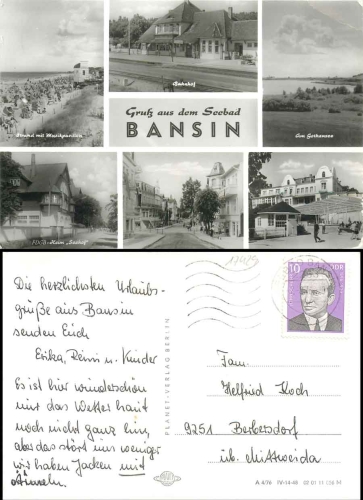 Strand mit Musikpavillon
Bahnhof
Am Gothensee
Gruß aus dem Seebad
BANSIN
FDGB-Heim „Seehof"
Die herzlichsten Urlaubs-
grüße aus Bansin
senden Euch
Erika, Reni u. Kinder
Es ist hier wunderschön
nur das Wetter haut
noch nicht ganz hin,
aber das stört uns weniger
wir haben Jacken mit
PLANET-VERLAG BERLIN
10
DDR
Fam.
Helfried Koch
9251 Berbersdorf
üb. Mittweida
A 4/76 IV-14-48 02 01 11 038 M